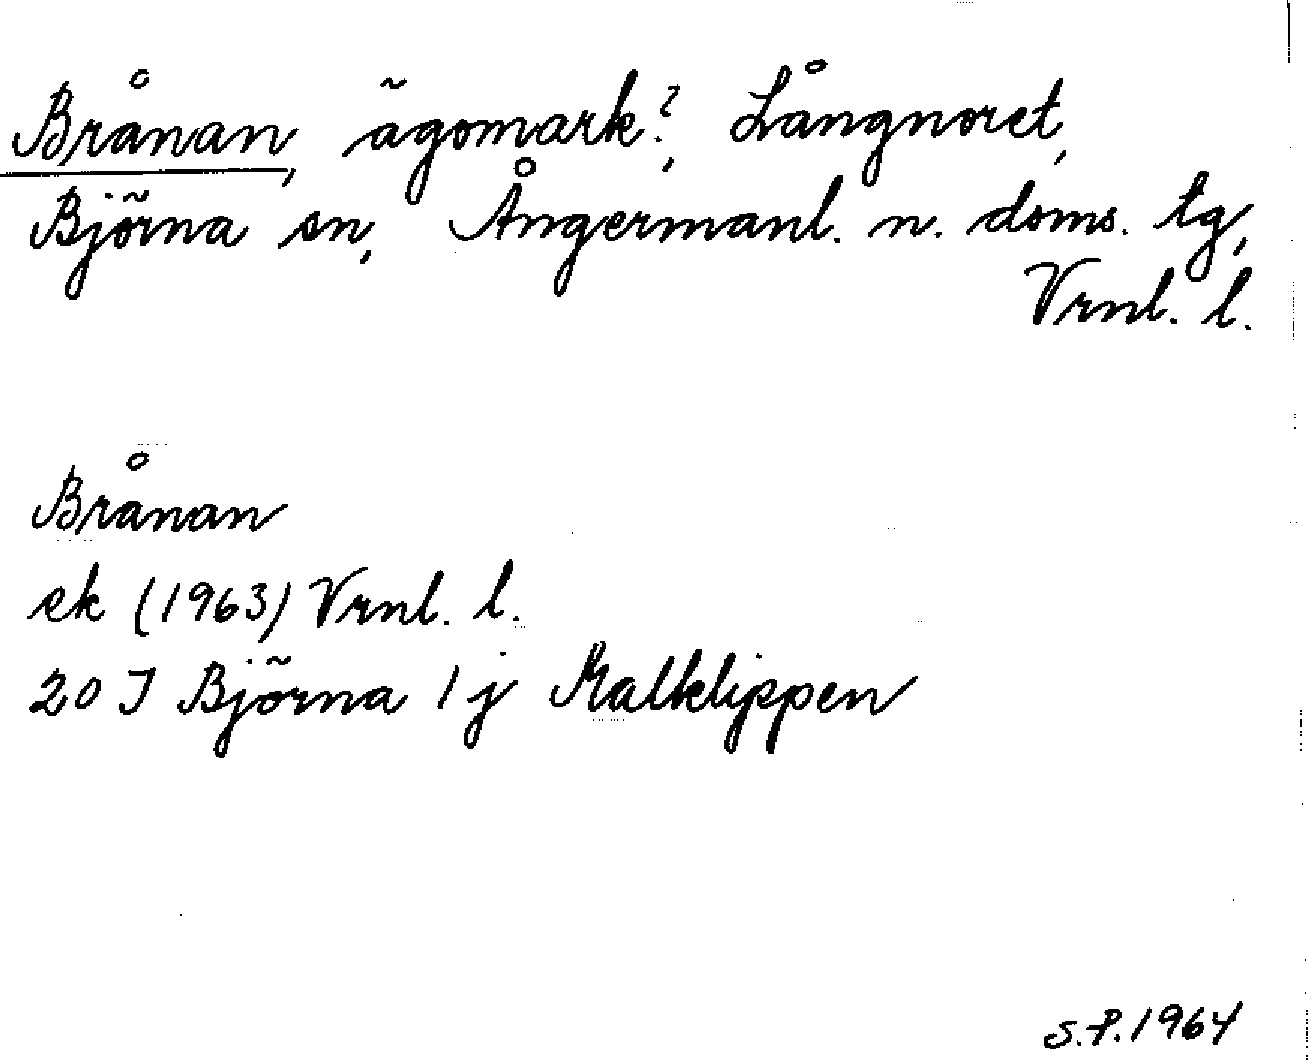 Brånan, ägomark?, Långnoret,
Björna sn, Ångermanl. n. doms. tg,
Vrnl. l.
Brånan
ek (1963) Vrnl. l.
20 I Björna 1 j Kalklippen
S.P. 1964